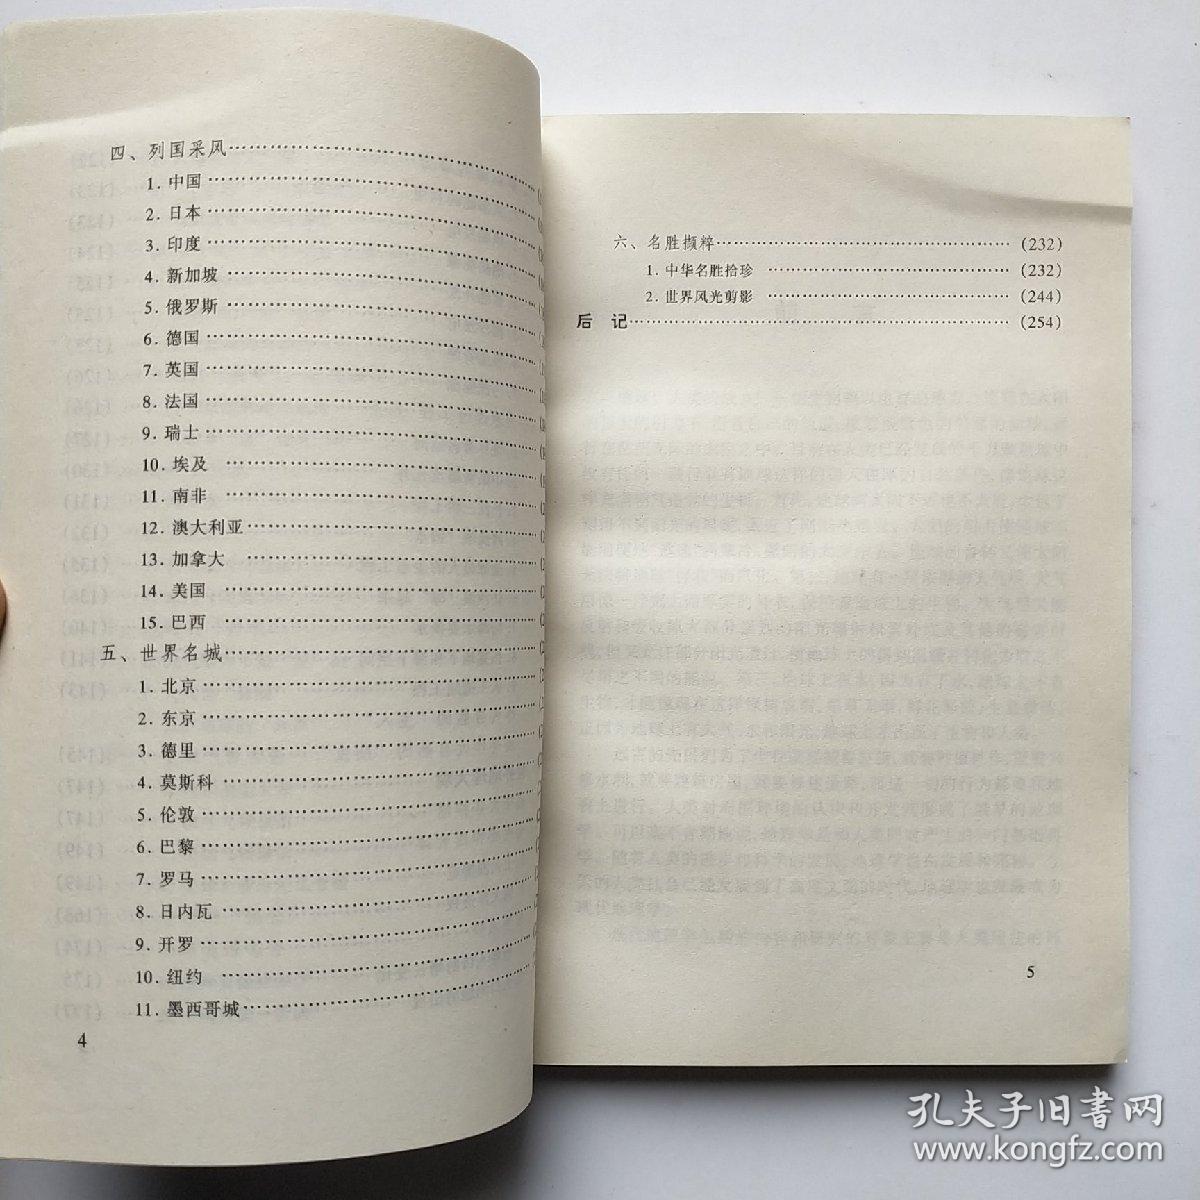 四、列国采风
1. 中国
2. 日本
3. 印度
4. 新加坡
5. 俄罗斯
6. 德国
7. 英国
8. 法国
9. 瑞士
10. 埃及
11. 南非
12. 澳大利亚
13. 加拿大
14. 美国
15. 巴西
五、世界名城
1. 北京
2. 东京
3. 德里
4. 莫斯科
5. 伦敦
6. 巴黎
7. 罗马
8. 日内瓦
9. 开罗
10. 纽约
11. 墨西哥城
4
六、名胜撷粹……(232)
1. 中华名胜拾珍……(232)
2. 世界风光剪影……(244)
后 记……(254)
5
孔夫子旧书网
www.kongfz.com